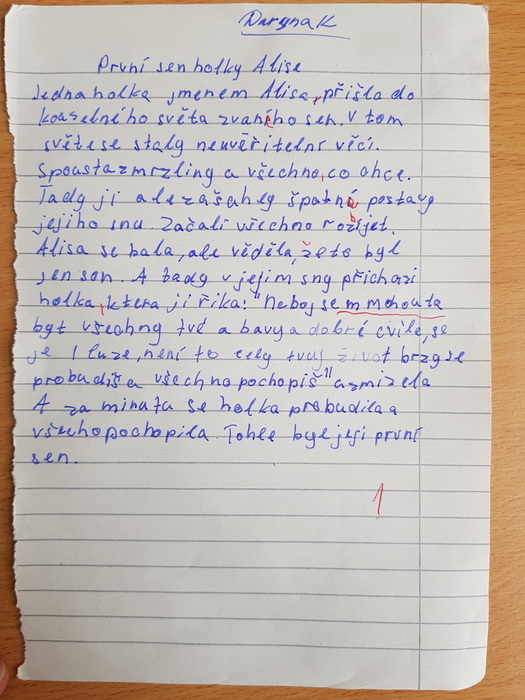 Daryna K
První sen holky Alise
Jedna holka jmenem Alisa, přišla do
kouzelného světa zvaného sen. V tom
světe se staly neuvěřitelní věci.
Spousta zmrzliny a všechno, co chce.
Tady ji ale zašahly špatné postavy
jejiho snu. Začali všechno rozbijet.
Alisa se bala, ale věděla, že to byl
jen son. A tady v jejim sny přichazi
holka, ktera ji říka: "Neboj se m mohouta
byt všechny tvé a bavy a dobré cvile, se
je 1 luze, není to cely tvuj život brzy se
probudiš a všechno pochopiš" a zmizela
A za minuta se holka probudila a
všecho pochopila. Tohle byl jeji první
sen.
1